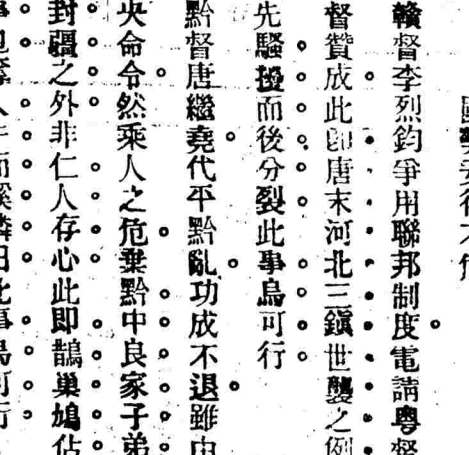 贛督李烈鈞爭用聯邦制度電請粵督
督贊成此卽唐末河北三鎭世襲之例
先騷擾而後分裂此事烏可行
黔督唐繼堯代平黔亂功成不退雖由
央命令然乘人之危棄黔中良家子弟
封疆之外非仁人存心此即鵲巢鳩佔